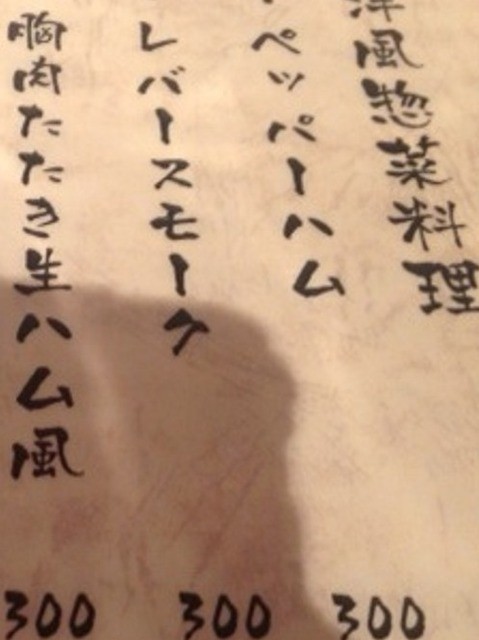 洋風惣菜料理
ペッパーハム
300
レバースモーク
300
胸肉たたき生ハム風
300